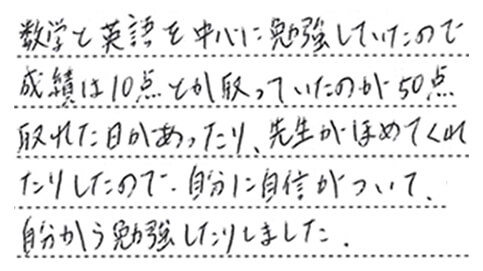 数学と英語を中心に勉強していたので
成績は10点とか取っていたのが50点
取れた日があったり、先生がほめてくれ
たりしたので、自分に自信がついて、
自分から勉強したりしました。